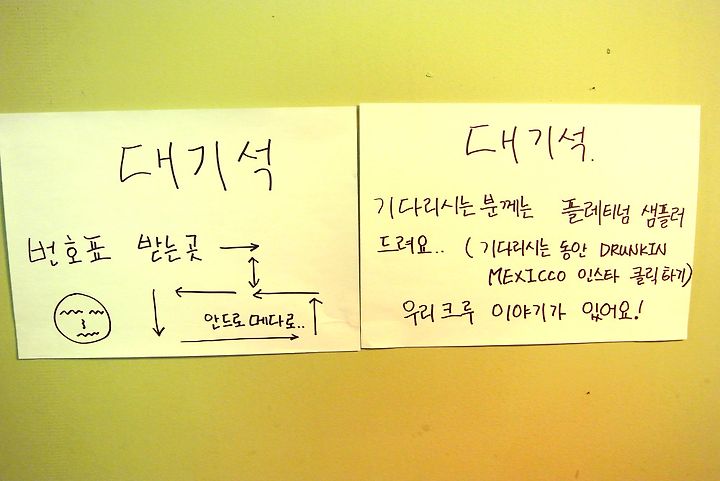 대기석
번호표 받는곳
안드로메다로..
대기석.
기다리시는분께는 플레티넘 샘플러
드려요.. (기다리시는 동안 DRUNKIN
MEXICCO 인스타 클릭하기)
우리크루 이야기가 있어요!